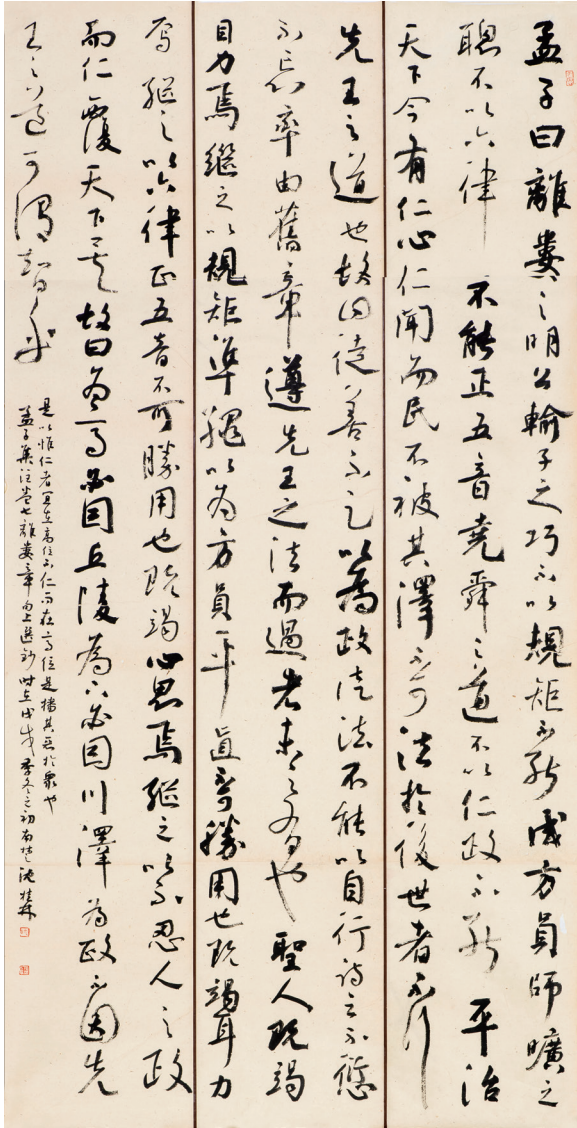 孟子曰離婁之明公輸子之巧不以規矩不能成方員師曠之
聰不以六律不能正五音堯舜之道不以仁政不能平治
天下今有仁心仁聞而民不被其澤不可法於後世者不行
先王之道也故曰徒善不足以為政徒法不能以自行詩云不愆
不忘率由舊章遵先王之法而過者未之有也聖人既竭
目力焉繼之以規矩準繩以為方員平直不可勝用也既竭耳力
焉繼之以六律正五音不可勝用也既竭心思焉繼之以不忍人之政
而仁覆天下矣故曰為高必因丘陵為下必因川澤為政不因先
王之道可謂智乎
是以惟仁者宜在高位不仁而在高位是播其惡於眾也
孟子集注卷七離婁章句上選鈔時在戊戌季冬之初